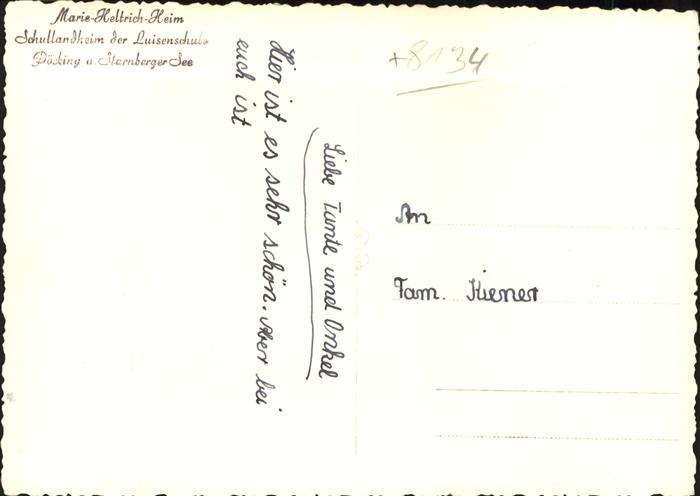 Marie-Heltrich-Heim
Schullandheim der Luisenschule
Pöcking a. Starnberger See
+8134
Liebe Tante und Onkel
Hier ist es sehr schön. Aber bei
euch ist
An
Fam. Kiener